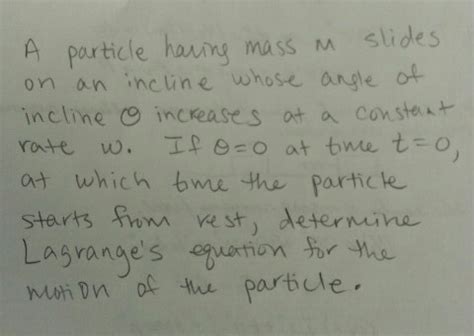 A particle having mass m slides
on an incline whose angle of
incline θ increases at a constant
rate w. If θ=0 at time t=0,
at which time the particle
starts from rest, determine
Lagrange's equation for the
motion of the particle.